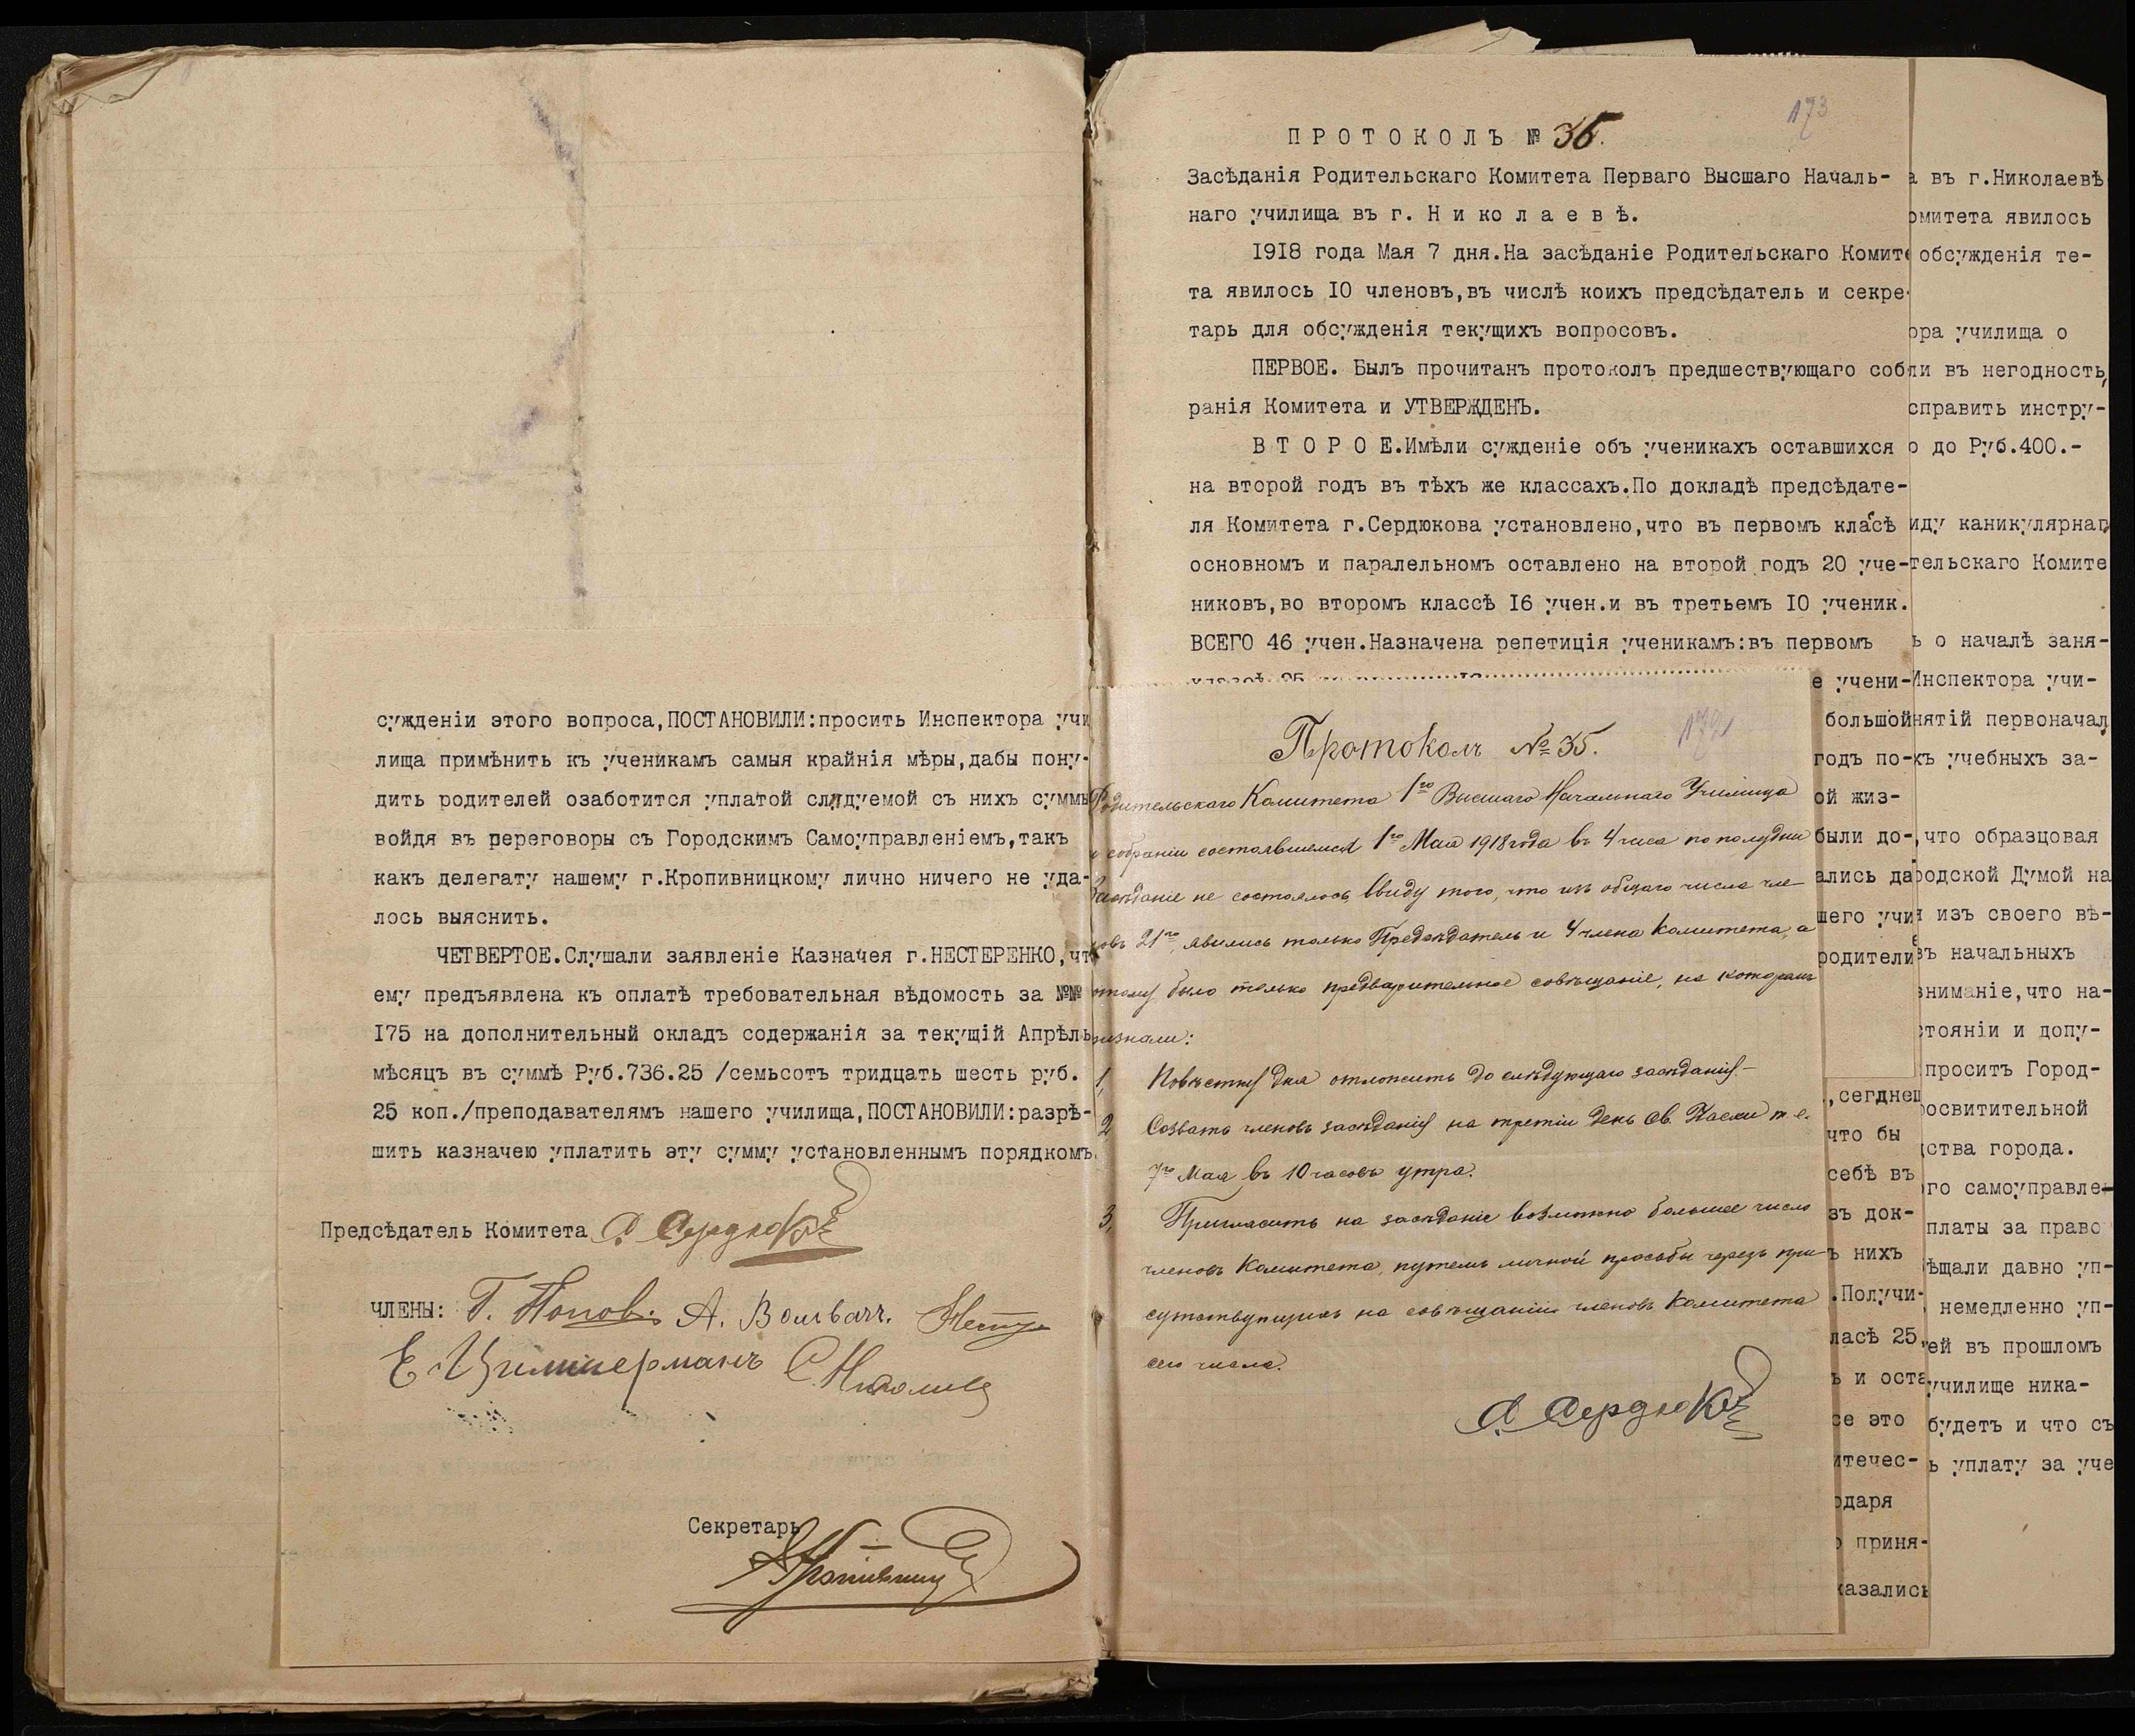 сужденіи этого вопроса,ПОСТАНОВИЛИ:просить Инспектора учи
лища примѣнить къ ученикамъ самыя крайнія мѣры,дабы пону-
дить родителей озаботится уплатой слѣдуемой съ нихъ суммы
войдя въ переговоры съ Городскимъ Самоуправленіемъ,такъ
какъ делегату нашему г.Кропивницкому лично ничего не уда-
лось выяснить.
ЧЕТВЕРТОЕ.Слушали заявленіе Казначея г.НЕСТЕРЕНКО,чт
ему предъявлена къ оплатѣ требовательная вѣдомость за №№
I75 на дополнительный окладъ содержанія за текущій Апрѣль
мѣсяцъ въ суммѣ Руб.736.25 /семьсотъ тридцать шесть руб.
25 коп./преподавателямъ нашего училища,ПОСТАНОВИЛИ:разрѣ-
шить казначею уплатить эту сумму установленнымъ порядкомъ.
Предсѣдатель Комитета С. Сердюковъ
ЧЛЕНЫ: Г. Поповъ А. Вольвач.
Е. Циммерманъ
Секретарь
173
ПРОТОКОЛЪ № 36.
Засѣданія Родительскаго Комитета Перваго Высшаго Началь-
наго училища въ г. Н и к о л а е в ѣ.
I9I8 года Мая 7 дня.На засѣданіе Родительскаго Комите
та явилось I0 членовъ,въ числѣ коихъ предсѣдатель и секре-
тарь для обсужденія текущихъ вопросовъ.
ПЕРВОЕ. Былъ прочитанъ протоколъ предшествующаго соб
ранія Комитета и УТВЕРЖДЕНЪ.
В Т О Р О Е.Имѣли сужденіе объ ученикахъ оставшихся
на второй годъ въ тѣхъ же классахъ.По докладѣ предсѣдате-
ля Комитета г.Сердюкова установлено,что въ первомъ класѣ
основномъ и паралельномъ оставлено на второй годъ 20 уче-
никовъ,во второмъ классѣ I6 учен.и въ третьемъ I0 ученик.
ВСЕГО 46 учен.Назначена репетиція ученикамъ:въ первомъ
Протоколъ № 35.
Родительскаго Комитета 1го Высшаго Начальнаго Училища
собраніи состоявшемся 1го Мая 1918 года въ 4 часа по полудни
Засѣданіе не состоялось, ввиду того, что изъ общаго числа чле-
овъ 21го, явились только Предсѣдатель и 4 члена комитета, а
отому было только предварительное совѣщаніе, на которомъ
ризнали:
1, Повѣстку дня отложить до слѣдующаго засѣданія.–
2 Созвать членовъ засѣданія на третій день Св. Пасхи т.е.
7го Мая въ 10 часовъ утра.
3, Пригласить на засѣданіе возможно большее число
членовъ Комитета, путемъ личной просьбы черезъ при-
сутствующихъ на совѣщаніи членовъ Комитета
сего числа.
С. Сердюковъ
е учени-
большой
годъ по-
ой жиз-
были до-
ались да
шего учи
родители
,сегднеш
что бы
себѣ въ
зъ док-
ъ нихъ
.Получи-
ласѣ 25,
ъ и оста
се это
итечес-
одаря
о приня-
казались
а въ г.Николаевѣ
омитета явилось
обсужденія те-
ора училища о
ли въ негодность,
справить инстру-
о до Руб.400.-
иду каникулярнаг
тельскаго Комите
ь о началѣ заня-
Инспектора учи-
нятій первоначал
хъ учебныхъ за-
,что образцовая
родской Думой на
я изъ своего вѣ-
въ начальныхъ
вниманіе,что на-
стояніи и допу-
проситъ Город-
росвитительной
ства города.
го самоуправле-
платы за право
ѣщали давно уп-
немедленно уп-
ей въ прошломъ
училище ника-
будетъ и что съ
ь уплату за уче